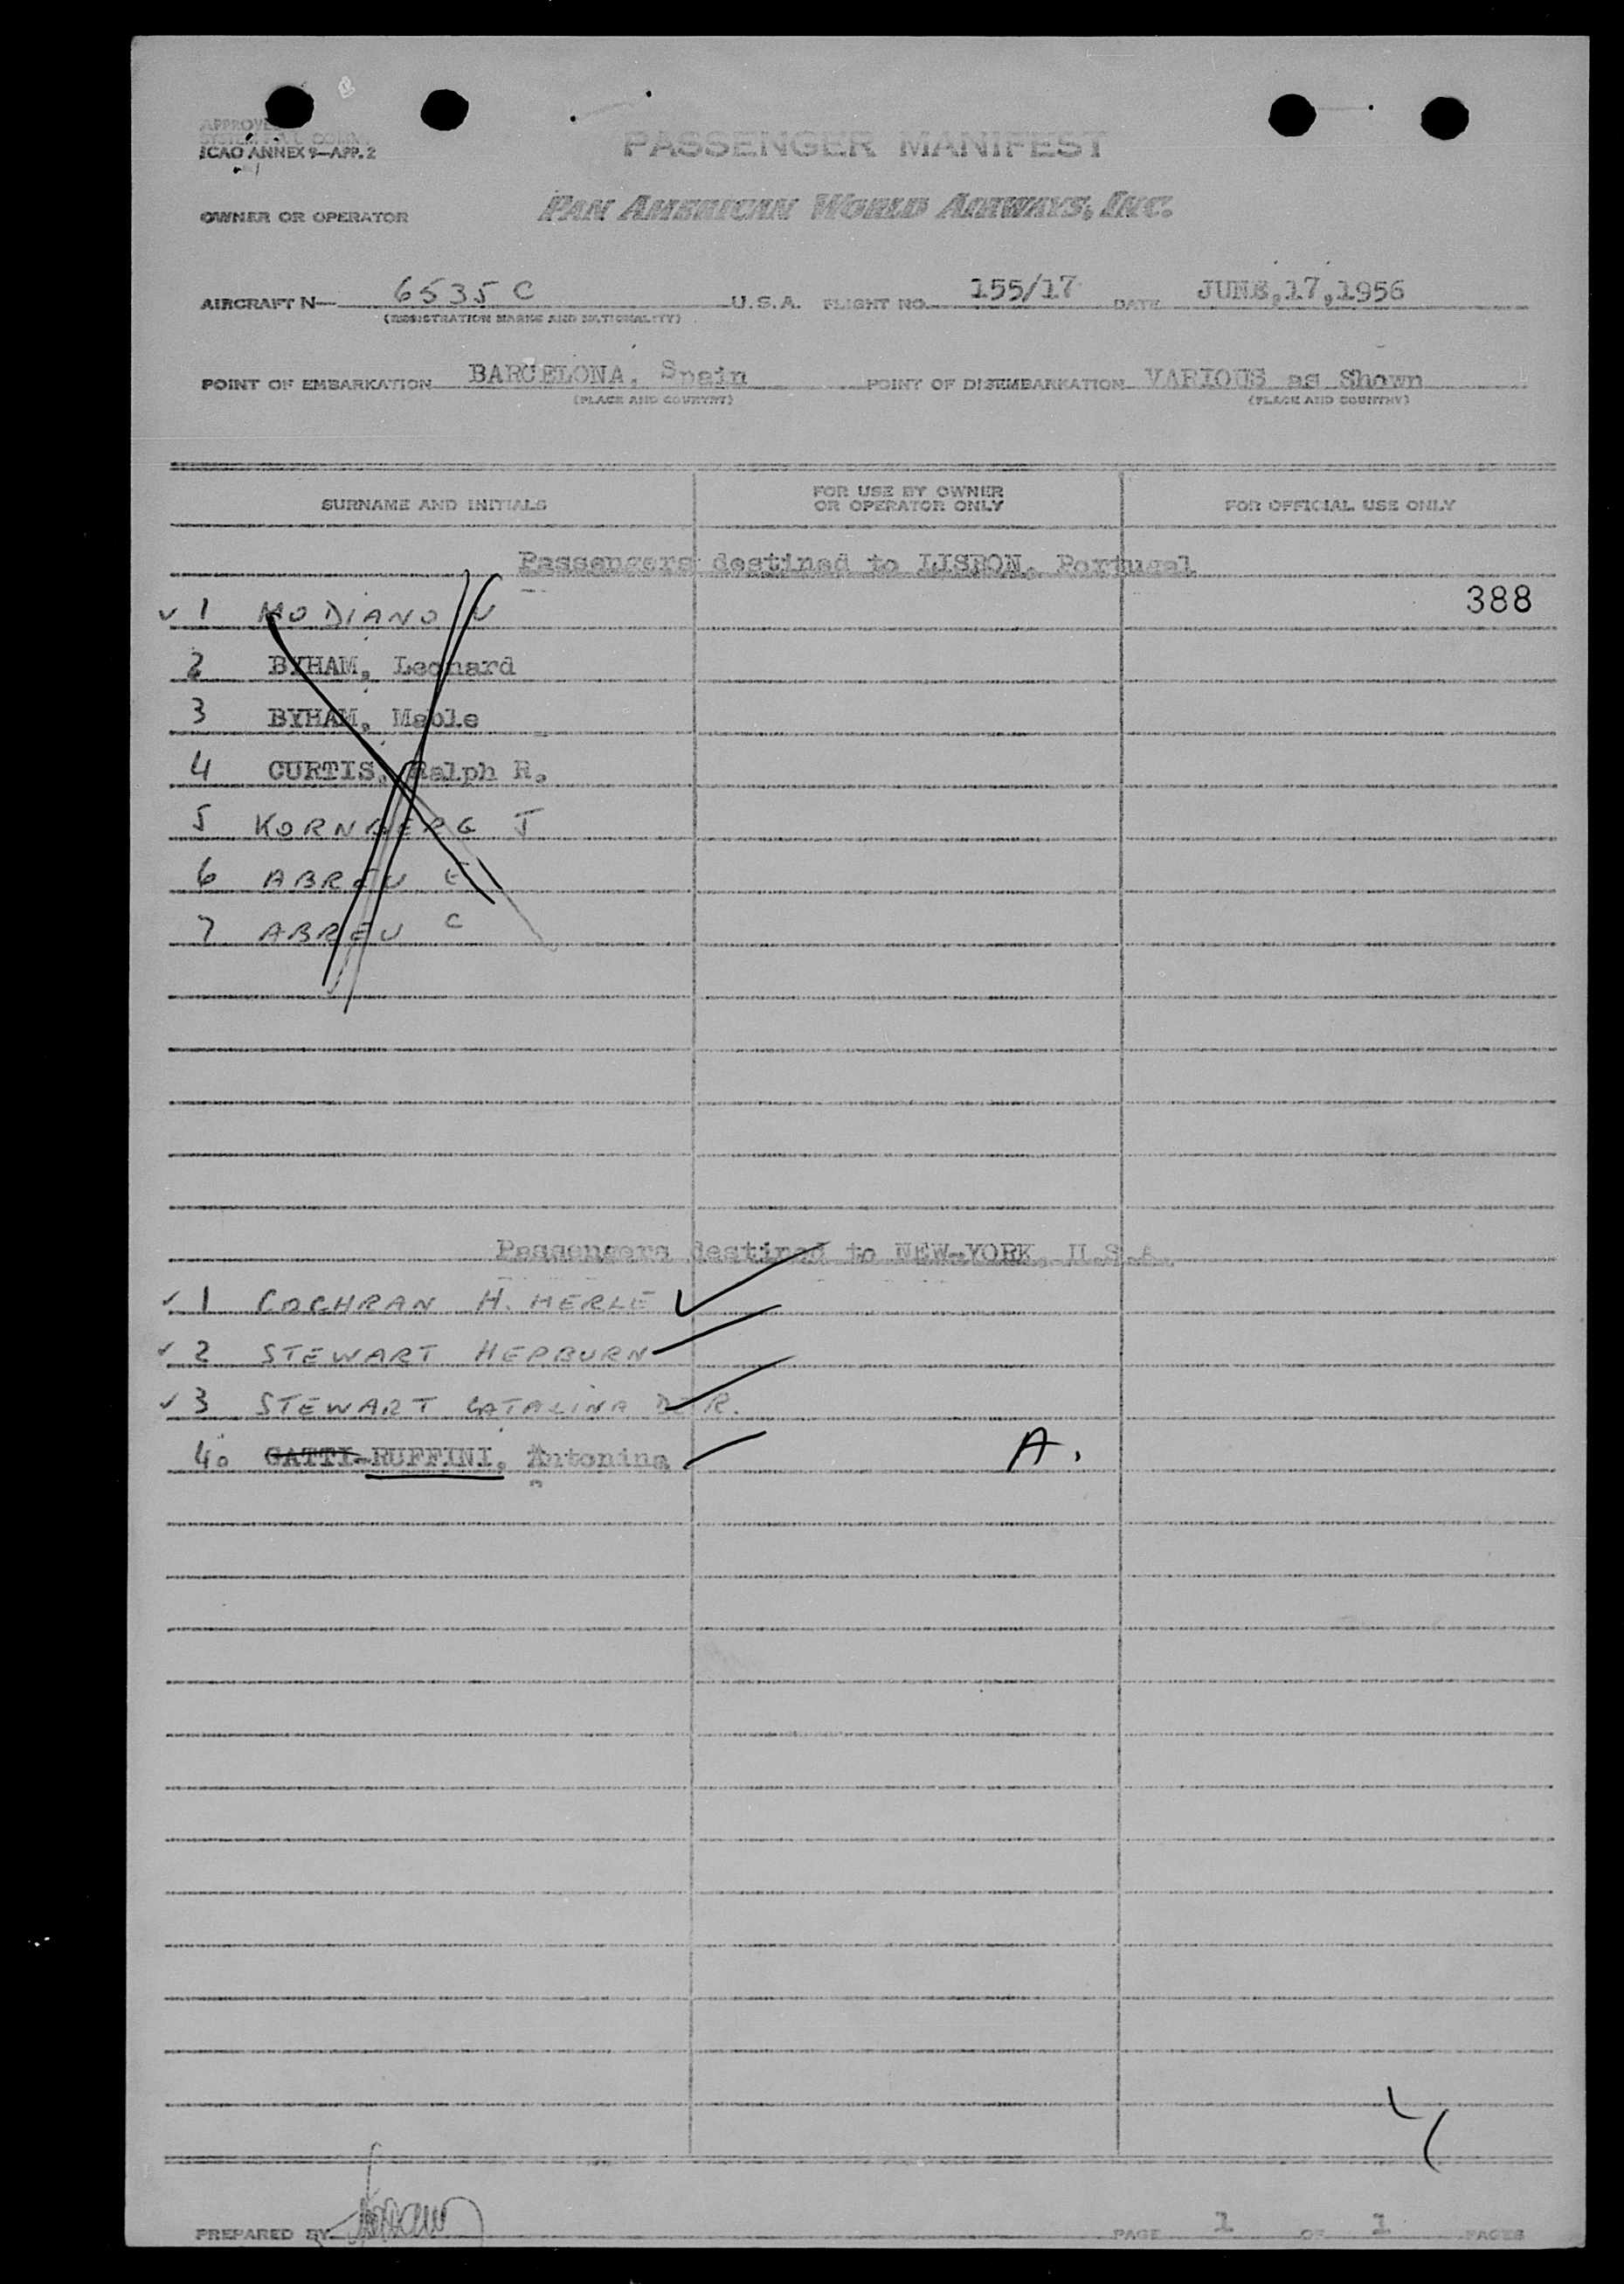 ICAO ANNEX 9—APP. 2
PASSENGER MANIFEST
OWNER OR OPERATOR PAN AMERICAN WORLD AIRWAYS, INC.
AIRCRAFT N— 6535 C U.S.A. FLIGHT NO. 155/17 DATE JUNE,17,1956
(REGISTRATION MARKS AND NATIONALITY)
POINT OF EMBARKATION BARCELONA, Spain POINT OF DISEMBARKATION VARIOUS as Shown
(PLACE AND COUNTRY) (PLACE AND COUNTRY)
SURNAME AND INITIALS FOR USE BY OWNER OR OPERATOR ONLY FOR OFFICIAL USE ONLY
Passengers destined to LISBON, Portugal
388
1 MODIANO V
2 BYHAM, Leonard
3 BYHAM, Mable
4 CURTIS, Ralph R.
5 KORNBERG J
6 ABREU E
7 ABREU C
Passengers destined to NEW-YORK, U.S.A.
1 COCHRAN H. MERLE
2 STEWART HEPBURN
3 STEWART CATALINA DE R.
4. GATTI-RUFFINI, Antonina A.
PREPARED BY PAGE 1 OF 1 PAGES